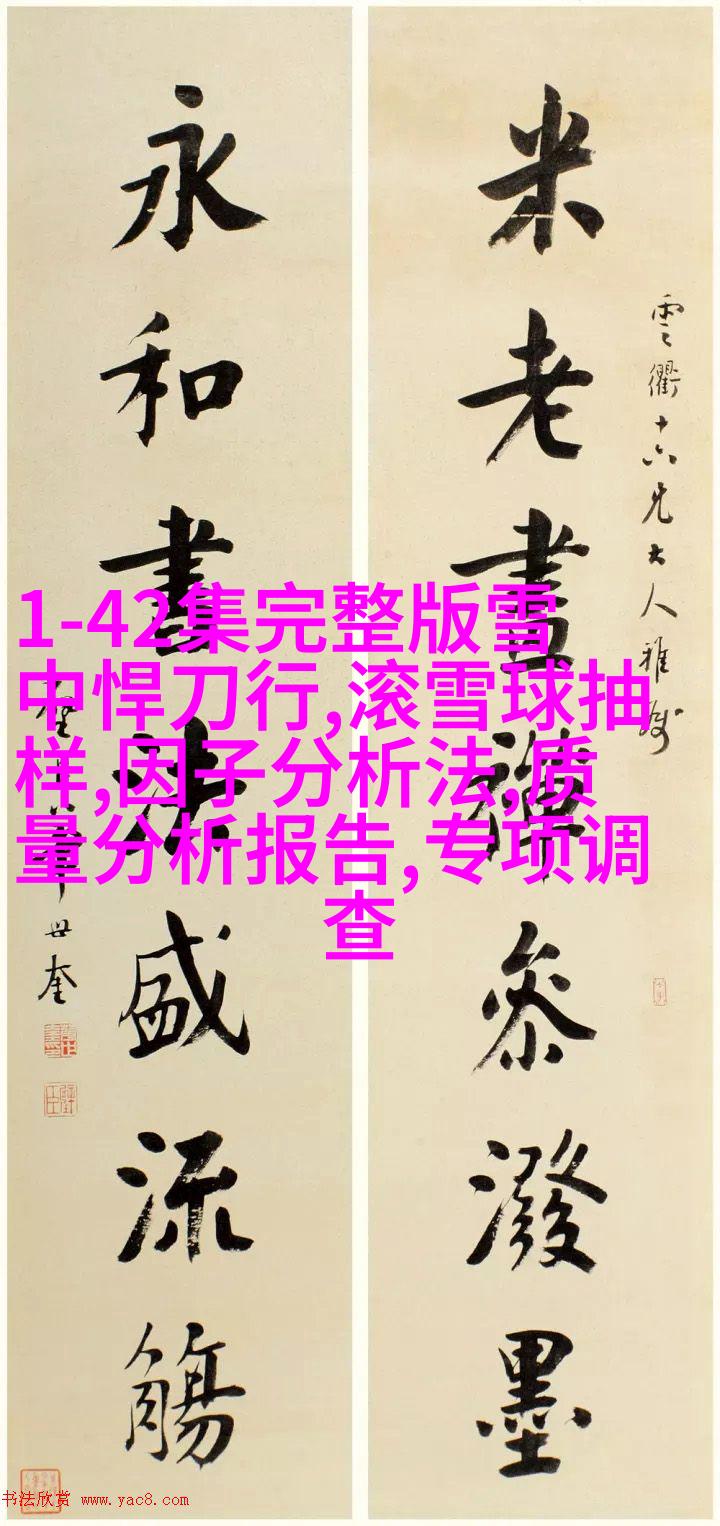 米老畫禪參潑墨
雲衢十六兄大人雅
永和書法盛流觴
華世奎
1-42集完整版雪
中悍刀行,滚雪球抽
样,因子分析法,质
量分析报告,专项调
查
书法欣赏 www.yac8.com